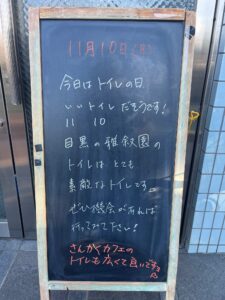 11月10日(月)
今日はトイレの日
いいトイレ だそうです!
11 10
目黒の雅叙園の
トイレは とても
素敵なトイレです
ぜひ機会があれば
行ってみて下さい!
さんかくカフェの
トイレも広くて良いですよ